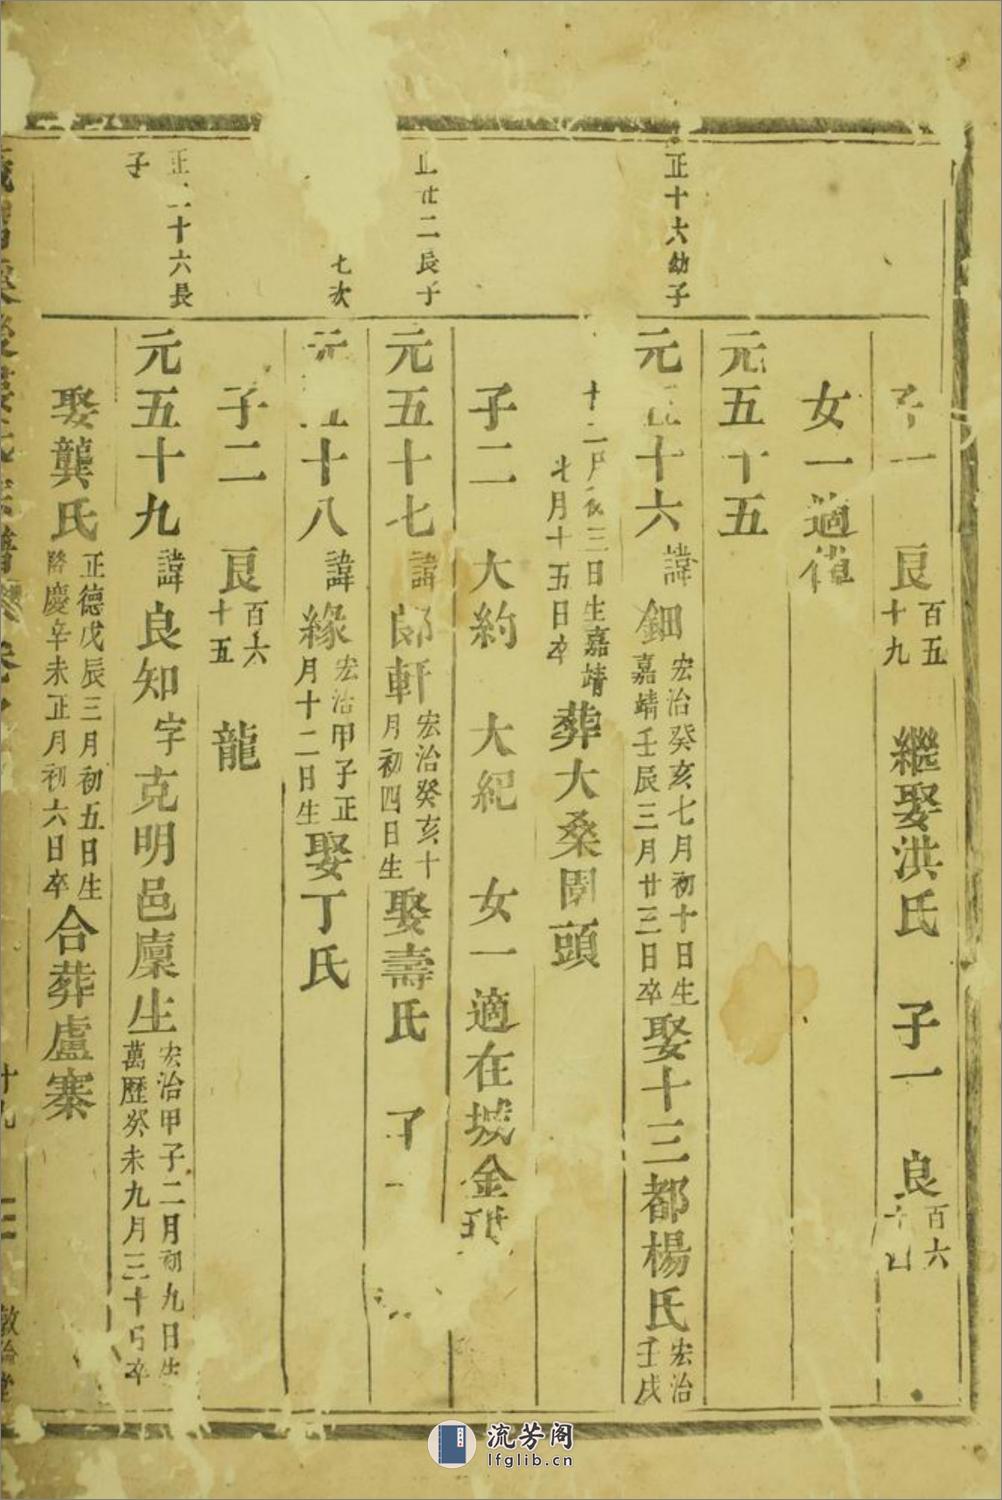 子一 良百五十九 繼娶洪氏 子一 良百六
女一適
元五十五
正十六幼子
元五十六 諱鈿 宏治癸亥七月初十日生嘉靖壬辰三月廿三日卒 娶十三都楊氏 宏治壬戌
十二月初三日生嘉靖 七月十五日卒 葬大桑園頭
子二 大約 大紀 女一適在城金
正廿二長子
元五十七 諱 軒 宏治癸亥十月初四日生 娶壽氏
七次
元五十八 諱緣 宏治甲子正月十二日生 娶丁氏
子二 良百六十五 龍
正二十六長子
元五十九 諱良知 字克明邑廩生 宏治甲子二月初九日生萬歷癸未九月三十日卒
娶龔氏 正德戊辰三月初五日生隆慶辛未正月初六日卒 合葬盧寨
十九
流芳阁
lfglib.cn